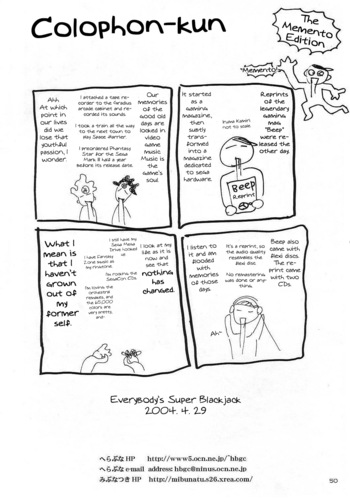 Colophon-kun
The
Memento
Edition
"Memento"
Reprints
of the
legendary
gaming
mag
"Beep"
were re-
leased the
other day.
not to scale.
It started
as a
gaming
magazine,
then
subtly
trans-
formed
into a
magazine
dedicated
to sega
hardware.
Beep
Reprint
Beep also
came with
flexi discs.
The re-
print came
with two
CDs.
It's a reprint, so
the audio quality
resembles the
flexi disc.
No remastering
was done or any-
thing.
I listen to
it and am
flooded
with
memories
of those
days.
Ah~
Our
memories
of the
good old
days are
locked in
video
game
music.
Music is
the
game's
soul.
I attached a tape re-
corder to the
arcade cabinet and re-
corded its sounds.
I took a train all the way
to the next town to
play Space Harrier.
I preordered Phantasy
Star for the Sega
Mark III half a year
before its release date.
Ahh
At which
point in
our lives
did we
lose that
youthful
passion, I
wonder.
I look at my
life as it is
now and
see that
nothing
has
changed.
I still have my
Sega Mega
Drive hooked
up
I have Fantasy
Zone music as
my ringtone.
I'm hosting the
SegaCon CDs.
I'm loving the
orchestral
remakes, and
the 65,000
colors are
very pretty,
and-
What I
mean is
that I
haven't
grown
out of
my
former
self.
Everybody's Super Blackjack
2004. 4. 29
へらぶなHP http://www5.ocn.ne.jp/~hbgc
へらぶな e-mail address hbgc@ninus.ocn.ne.jp
みぶなつきHP http://mibunatu.s26.xrea.com/
50